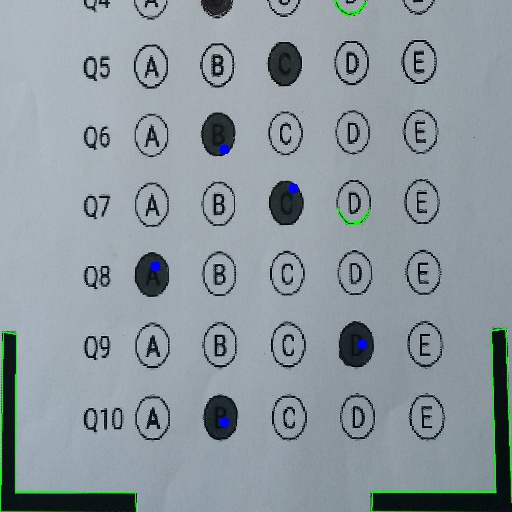 Q4 A C D E
Q5 A B C D E
Q6 A B C D E
Q7 A B C D E
Q8 A B C D E
Q9 A B C D E
Q10 A B C D E